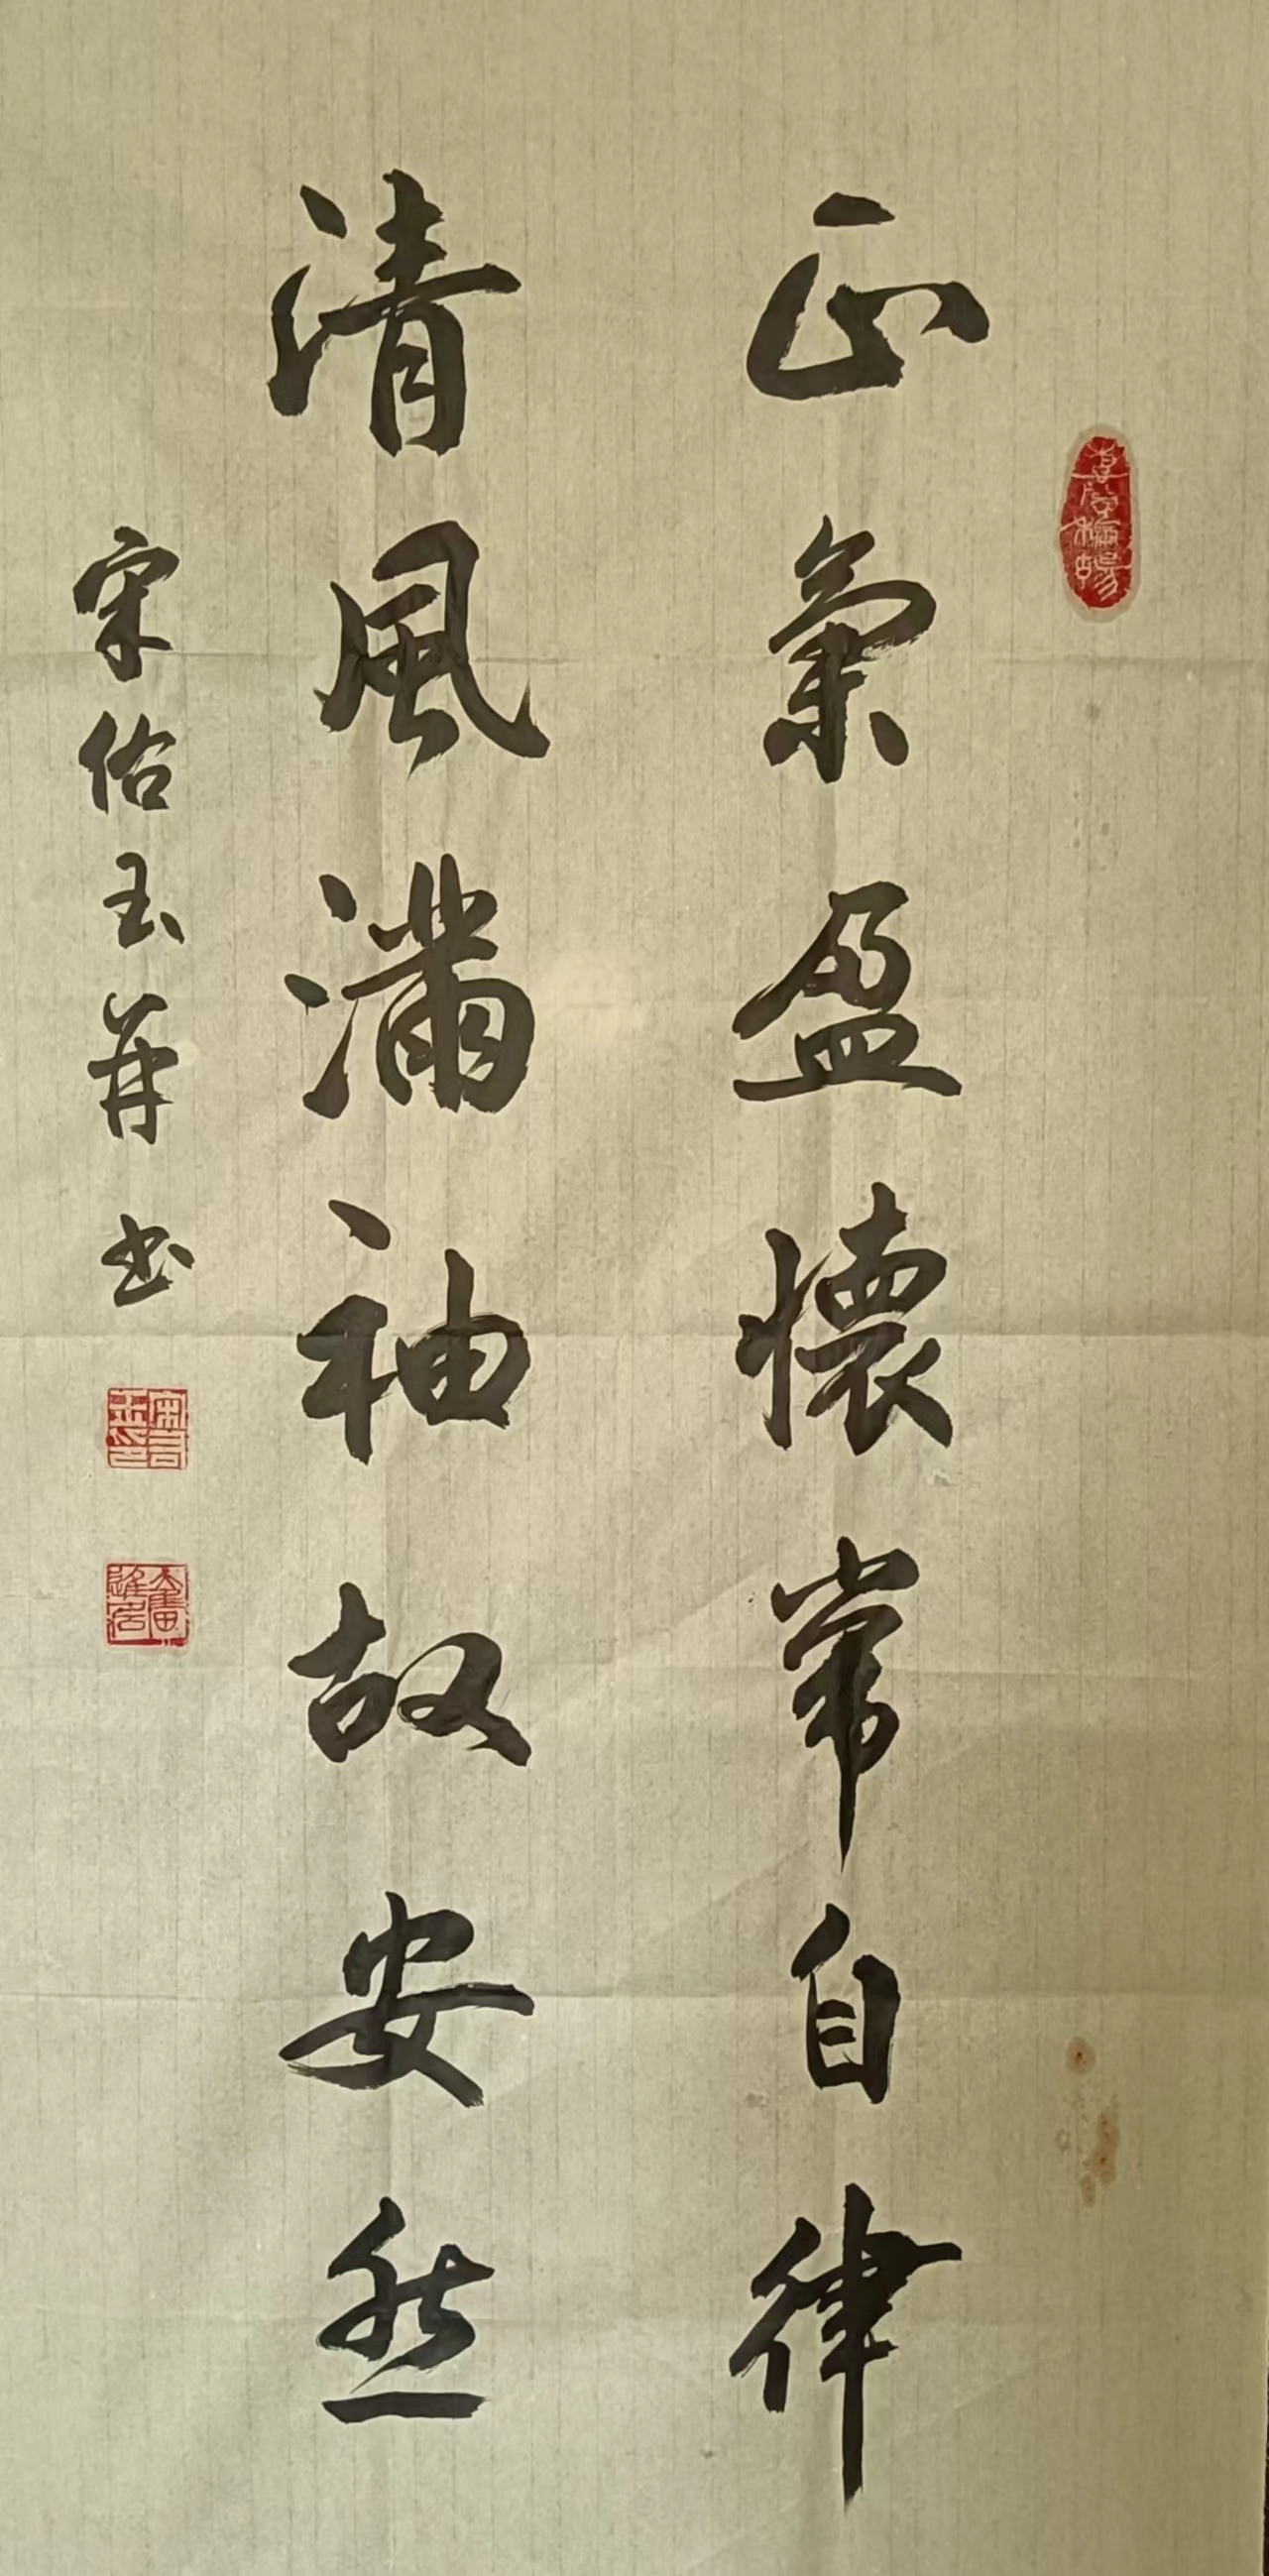 正氣盈懷常自律
清風滿袖故安然
宋佑玉并书